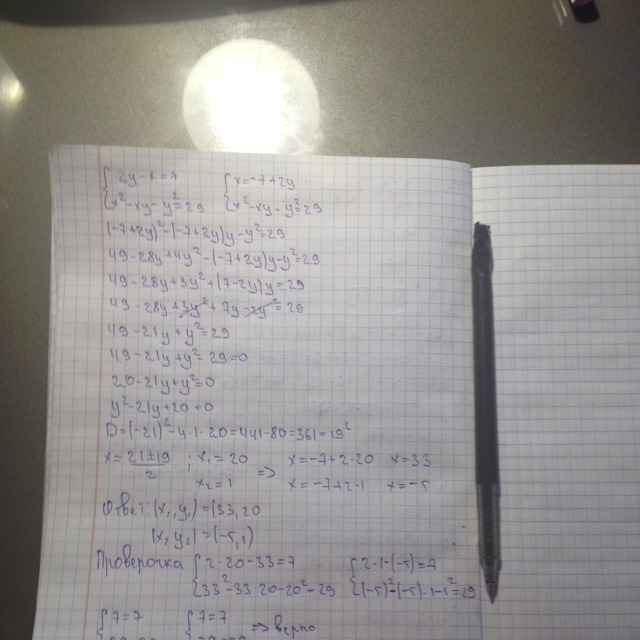 {2y-x=7 {x=-7+2y
{x²-xy-y²=29 {x²-xy-y²=29
(-7+2y)²-(-7+2y)y-y²=29
49-28y+4y²-(-7+2y)y-y²=29
49-28y+3y²+(7-2y)y=29
49-21y+y²=29
49-21y+y²-29=0
20-21y+y²=0
y²-21y+20=0
D=(-21)²-4·1·20=441-80=361=19²
x=21±19/2 ; x₁=20 => x=-7+2·20 x=33
x₂=1 x=-7+2·1 x=-5
Ответ: (x,y₁)=(33,20
(x,y₂)=(-5,1)
Проверочка {2·20-33=7 {2·1-(-5)=7
{33²-33·20-20²=29 {(-5)²-(-5)·1-1²=29
{7=7 {7=7 => верно